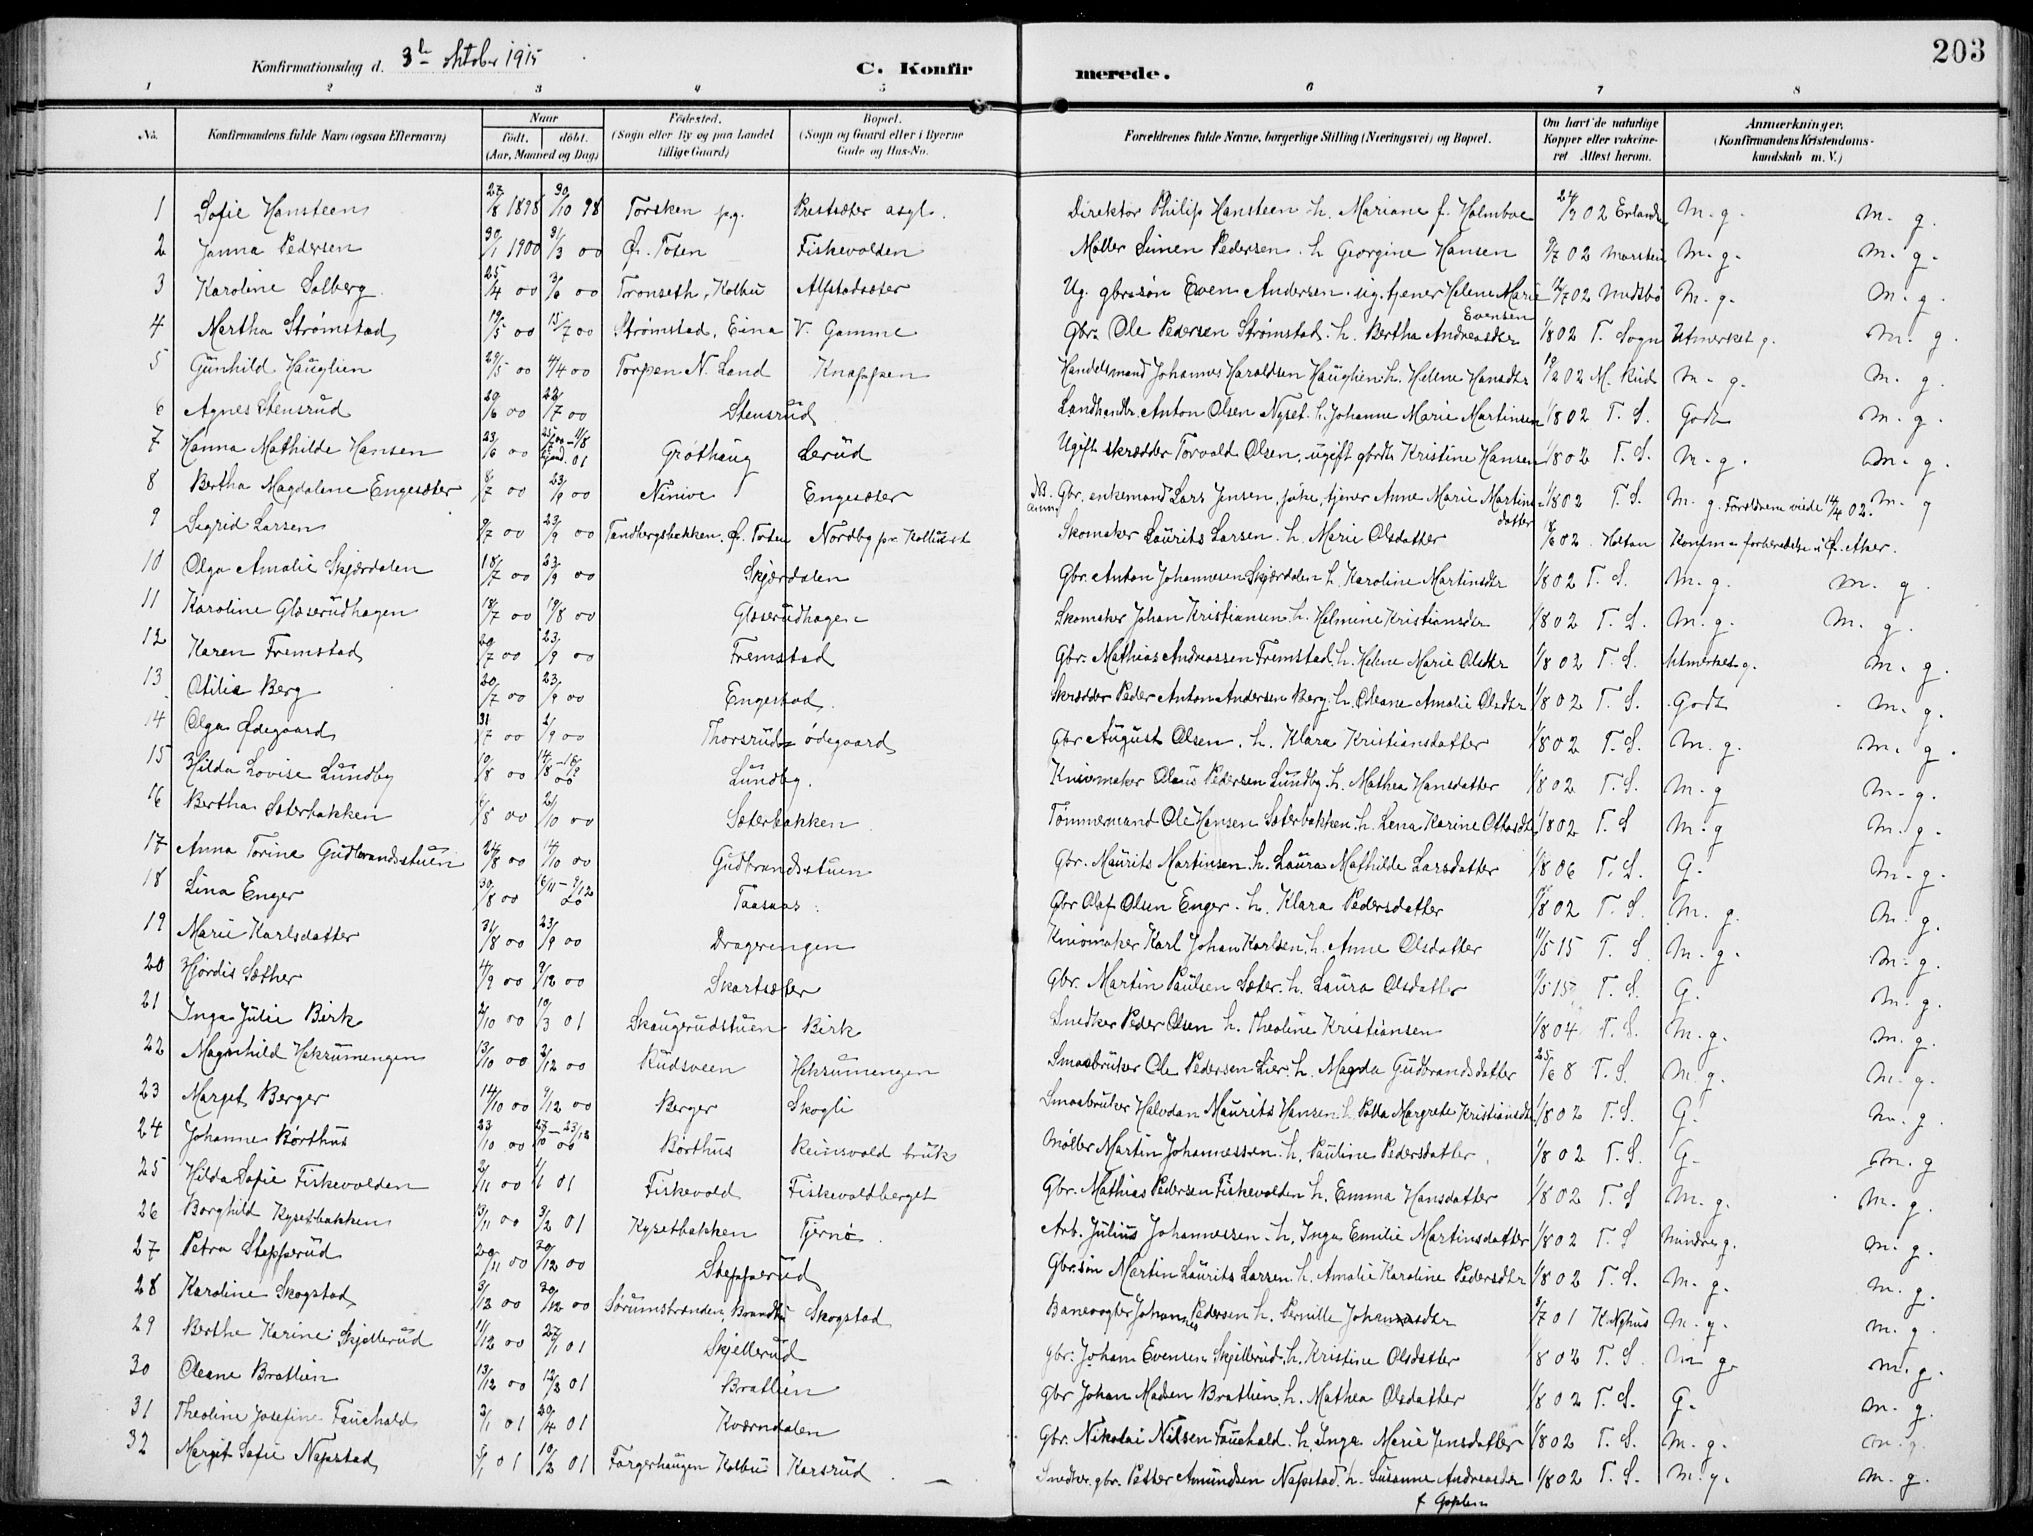 Konfirmationsdag d. 3de oktober 1915
C. Konfirmerede.
203
1 2 3 4 5 6 7 8
No. Konfirmandens fulde Navn (ogsaa Efternavn) Naar født. døbt. (Aar, Maaned og Dag) Fødested. (Sogn eller By og paa Landet tillige Gaard) Bopæl. (Sogn og Gaard eller i Byerne Gade og Hus-No. Forældrenes fulde Navne, borgerlige Stilling (Næringsvei) og Bopæl. Om havt de naturlige Kopper eller vakcineret Attest herom. Anmærkninger, (Konfirmandens Kristendomskundskab m. V.)
1 Sofie Hansteen 27/8 1898 30/10 98 Torsken pg. Prestsæter asyl. Direktør Philip Hansteen. h. Mariane f. Holmboe 24/9 02 Erlands M. g. M. g.
2 Janna Pedersen 30/1 1900 31/3 00 Ø. Toten Fiskevolden Møller Simen Pedersen. h Georgine Hansen 9/7 02 Marstein M. g. M. g.
3 Karoline Solberg 25/4 00 3/6 00 Tronseth, Kolbu Alfstadsæter Ug. gbr.søn Even Andersen. ug. tjener Helene Marie Evensen 12/7 02 M. g. M. g.
4 Martha Strømstad 19/5 00 15/7 00 Strømstad, Eina V. Gamme Gbr. Ole Pedersen Strømstad. h. Bertha Andreasdtr 1/8 02 T. Sogn Utmerket g. M. g.
5 Gunhild Hauglien 29/5 00 4/4 00 Torpen N. Land Knappen Handelsmand Johannes Haraldsen Hauglien. h. Helene Hansdtr 19/2 02 M. Rud M. g. M. g.
6 Agnes Stensrud 20/6 00 22/7 00 Stensrud Landhandlr. Anton Olsen Nyset. h. Johanne Marie Martinsen 1/8 02 T. S. Godt M. g.
7 Hanna Mathilde Hansen 23/6 00 Grøthaug Lerud Ugift skrædder Torvald Olsen, ugift gbrdtr Kristine Hansen 1/8 02 T. S. M. g. M. g.
8 Bertha Magdalene Engesæter 8/7 00 23/9 00 Ninive Engesæter Gbr. enkemand Lars Jensen, pike, tjener Anne Marie Martinsdatter 1/8 02 T. S. M. g. Forældrene viede 14/4 02. M. g
9 Sigrid Larsen 9/7 00 23/9 00 Tandbergsbakken, Ø. Toten Nordby pr. Kolbu st Skomaker Laurits Larsen. h. Marie Olsdatter 18/6 02 Holtan Konfm. forberedelse i Ø. Aker.
10 Olga Amalie Skjærdalen 18/7 00 23/9 00 Skjærdalen Gbr. Anton Johannesen Skjærdalen h. Karoline Martinsdtr 1/8 02 T. S. M. g. M. g.
11 Karoline Glæserudhagen 18/7 00 19/8 00 Glæserudhagen Skomaker Johan Kristiansen. h. Helmine Kristiansdtr 1/8 02 T. S. M. g. M. g.
12 Karen Fremstad 20/7 00 23/9 00 Fremstad Gbr. Mathias Andreassen Fremstad. h. Helene Marie Olsdtr 1/8 02 T. S. Utmerket g. M. g.
13 Otilie Berg 20/7 00 23/9 00 Engestad Skrædder Peder Anton Andersen Berg. h. Oleane Amalie Olsdtr 1/8 02 T. S. Godt M. g.
14 Olga Ødegaard 31/7 00 2/9 00 Thorsrud = ødegaard Gbr August Olsen. h. Klara Kristiansdatter 1/8 02 T. S. M. g. M. g.
15 Hilda Lovise Lundby 10/8 00 Lundby. Knivmaker Olaus Pedersen Lundby. h. Mathea Hansdatter 1/8 02 T. S. M. g M. g.
16 Bertha Sæterbakken 1/8 00 2/10 00 Sæterbakken Tømmermand Ole Hansen Sæterbakken. h. Lena Karine Ottosdtr 1/8 02 T. S M. g M. g.
17 Anna Torine Gudbrandsstuen 24/8 00 14/10 00 Gudbrandsstuen Gbr. Maurits Martinsen. h. Laura Mathilde Larsdatter 1/8 06 T. S. G. M. g.
18 Lina Enger 30/8 00 6/11 - 9/12 00 Taasaas Gbr Olaf Olsen Enger. h. Klara Pedersdatter 1/8 02 T. S. M. g. M. g.
19 Marie Karlsdatter 31/8 00 23/9 00 Drageringen Knivmaker Karl Johan Karlsen. h. Anne Olsdatter 11/5 15 T. S M. g. M. g.
20 Hjørdis Sæther 4/9 00 9/12 00 Skartsæter Gbr. Martin Paulsen Sæter. h. Laura Olsdatter 9/5 15 T. S. G. M. g.
21 Inga Julie Birk 2/10 00 10/3 01 Skaugerudstuen Birk Snedker Peder Olsen h. Theoline Kristiansen 1/8 04 T. S. M. g. M. g.
22 Magnhild Hekrumengen 13/10 00 2/12 00 Rudsveen Hekrumengen Smaabruker Ole Pedersen Lier. h. Magda Gudbrandsdatter 25/6 8 T. S. M. g. M. g.
23 Margit Berger 14/10 00 9/12 00 Berger Skogli Smaabruker Halvdan Maurits Hansen. h. Petra Margrete Kristiansdtr 1/8 02 T. S. G. M. g.
24 Johanne Børthus 23/10 00 23/10 - 23/12 00 Børthus Reinsvold bruk Møller Martin Johannessen. h. Pauline Pedersdatter 1/8 02 T. S. G. M. g
25 Hilda Sofie Fiskevolden 2/11 00 1/1 01 Fiskevold Fiskevoldberget Gbr. Mathias Pedersen Fiskevolden h. Emma Hansdatter 1/8 02 T. S M. g. M. g.
26 Borghild Kysetbakken 13/11 00 3/2 01 Kysetbakken Tjernø Arb. Julius Johannessen. h. Inga Emilie Martinsdatter 1/8 02 T. S Mindre g. M. g.
27 Petra Stepperud 20/11 00 30/12 00 Stepperud Gbr.søn Martin Laurits Larsen h. Amalie Karoline Pedersdtr 1/8 02 T. S. M. g. M. g.
28 Karoline Skogstad 3/12 00 30/12 00 Sørumstranden, Brandbu Skogstad Banevogter Johannes Pedersen h. Pernille Johansdtr 5/7 01 H. Nyhus M. g. M. g.
29 Berthe Karine Skjellerud 11/12 00 27/1 01 Skjellerud gbr. Johan Evensen Skjellerud. h. Kristine Olsdatter 1/8 02 T. S. M g. M. g.
30 Oleane Bratlien 13/12 00 12/2 01 Bratlien Gbr Johan Madsen Bratlien. h. Mathea Olsdatter 1/8 02 T. S. G. M. g.
31 Theoline Josefine Fauchald 2/1 01 20/4 01 Kværndalen Gbr. Nikolai Nilsen Fauchald. h. Inga Marie Jensdatter 1/8 02 T. S. M. g. M. g.
32 Margit Sofie Nafstad 9/1 01 10/2 01 Fargerhaugen Kolbu Karsrud. — Snedker. gbr. Petter Amundsen Nafstad. h. Susanne Andreasdtr 1/8 02 T. S. M. g. M. g.